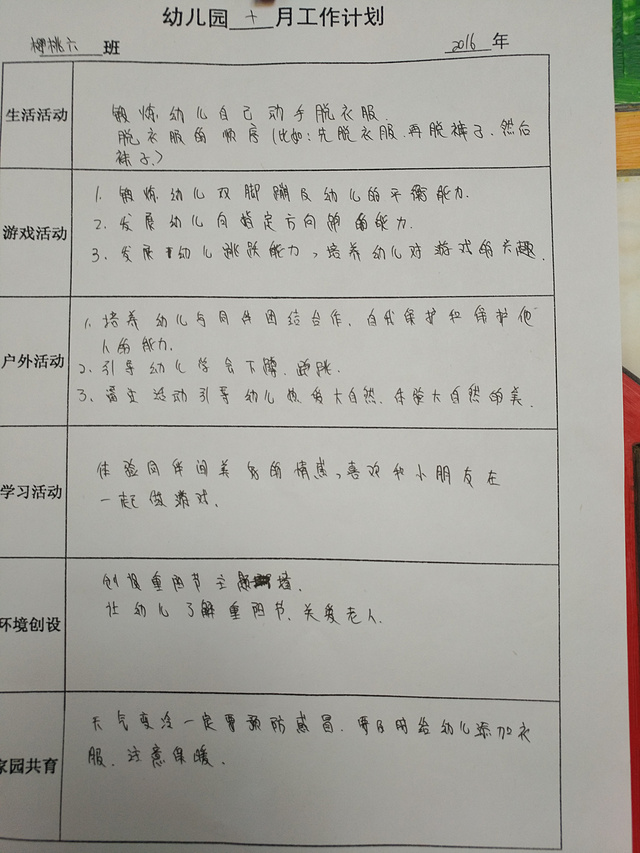 幼儿园 十 月工作计划
樱桃六 班 2016 年
生活活动
锻炼幼儿自己动手脱衣服.
脱衣服的顺序(比如:先脱衣服.再脱裤子.然后
袜子.)
游戏活动
1. 锻炼幼儿双脚蹦及幼儿的平衡能力.
2. 发展幼儿向指定方向蹦的能力.
3. 发展幼儿跳跃能力,培养幼儿对游戏的兴趣.
户外活动
1. 培养幼儿与同伴团结合作.自我保护和保护他
人的能力.
2. 引导幼儿学会下蹲.跑跳.
3. 活动引导幼儿热爱大自然.体验大自然的美.
学习活动
体验同伴间美好的情感,喜欢和小朋友在
一起做游戏.
环境创设
创设重阳节主题墙.
让幼儿了解重阳节.关爱老人.
家园共育
天气变冷一定要预防感冒.要及时给幼儿添加衣
服.注意保暖.